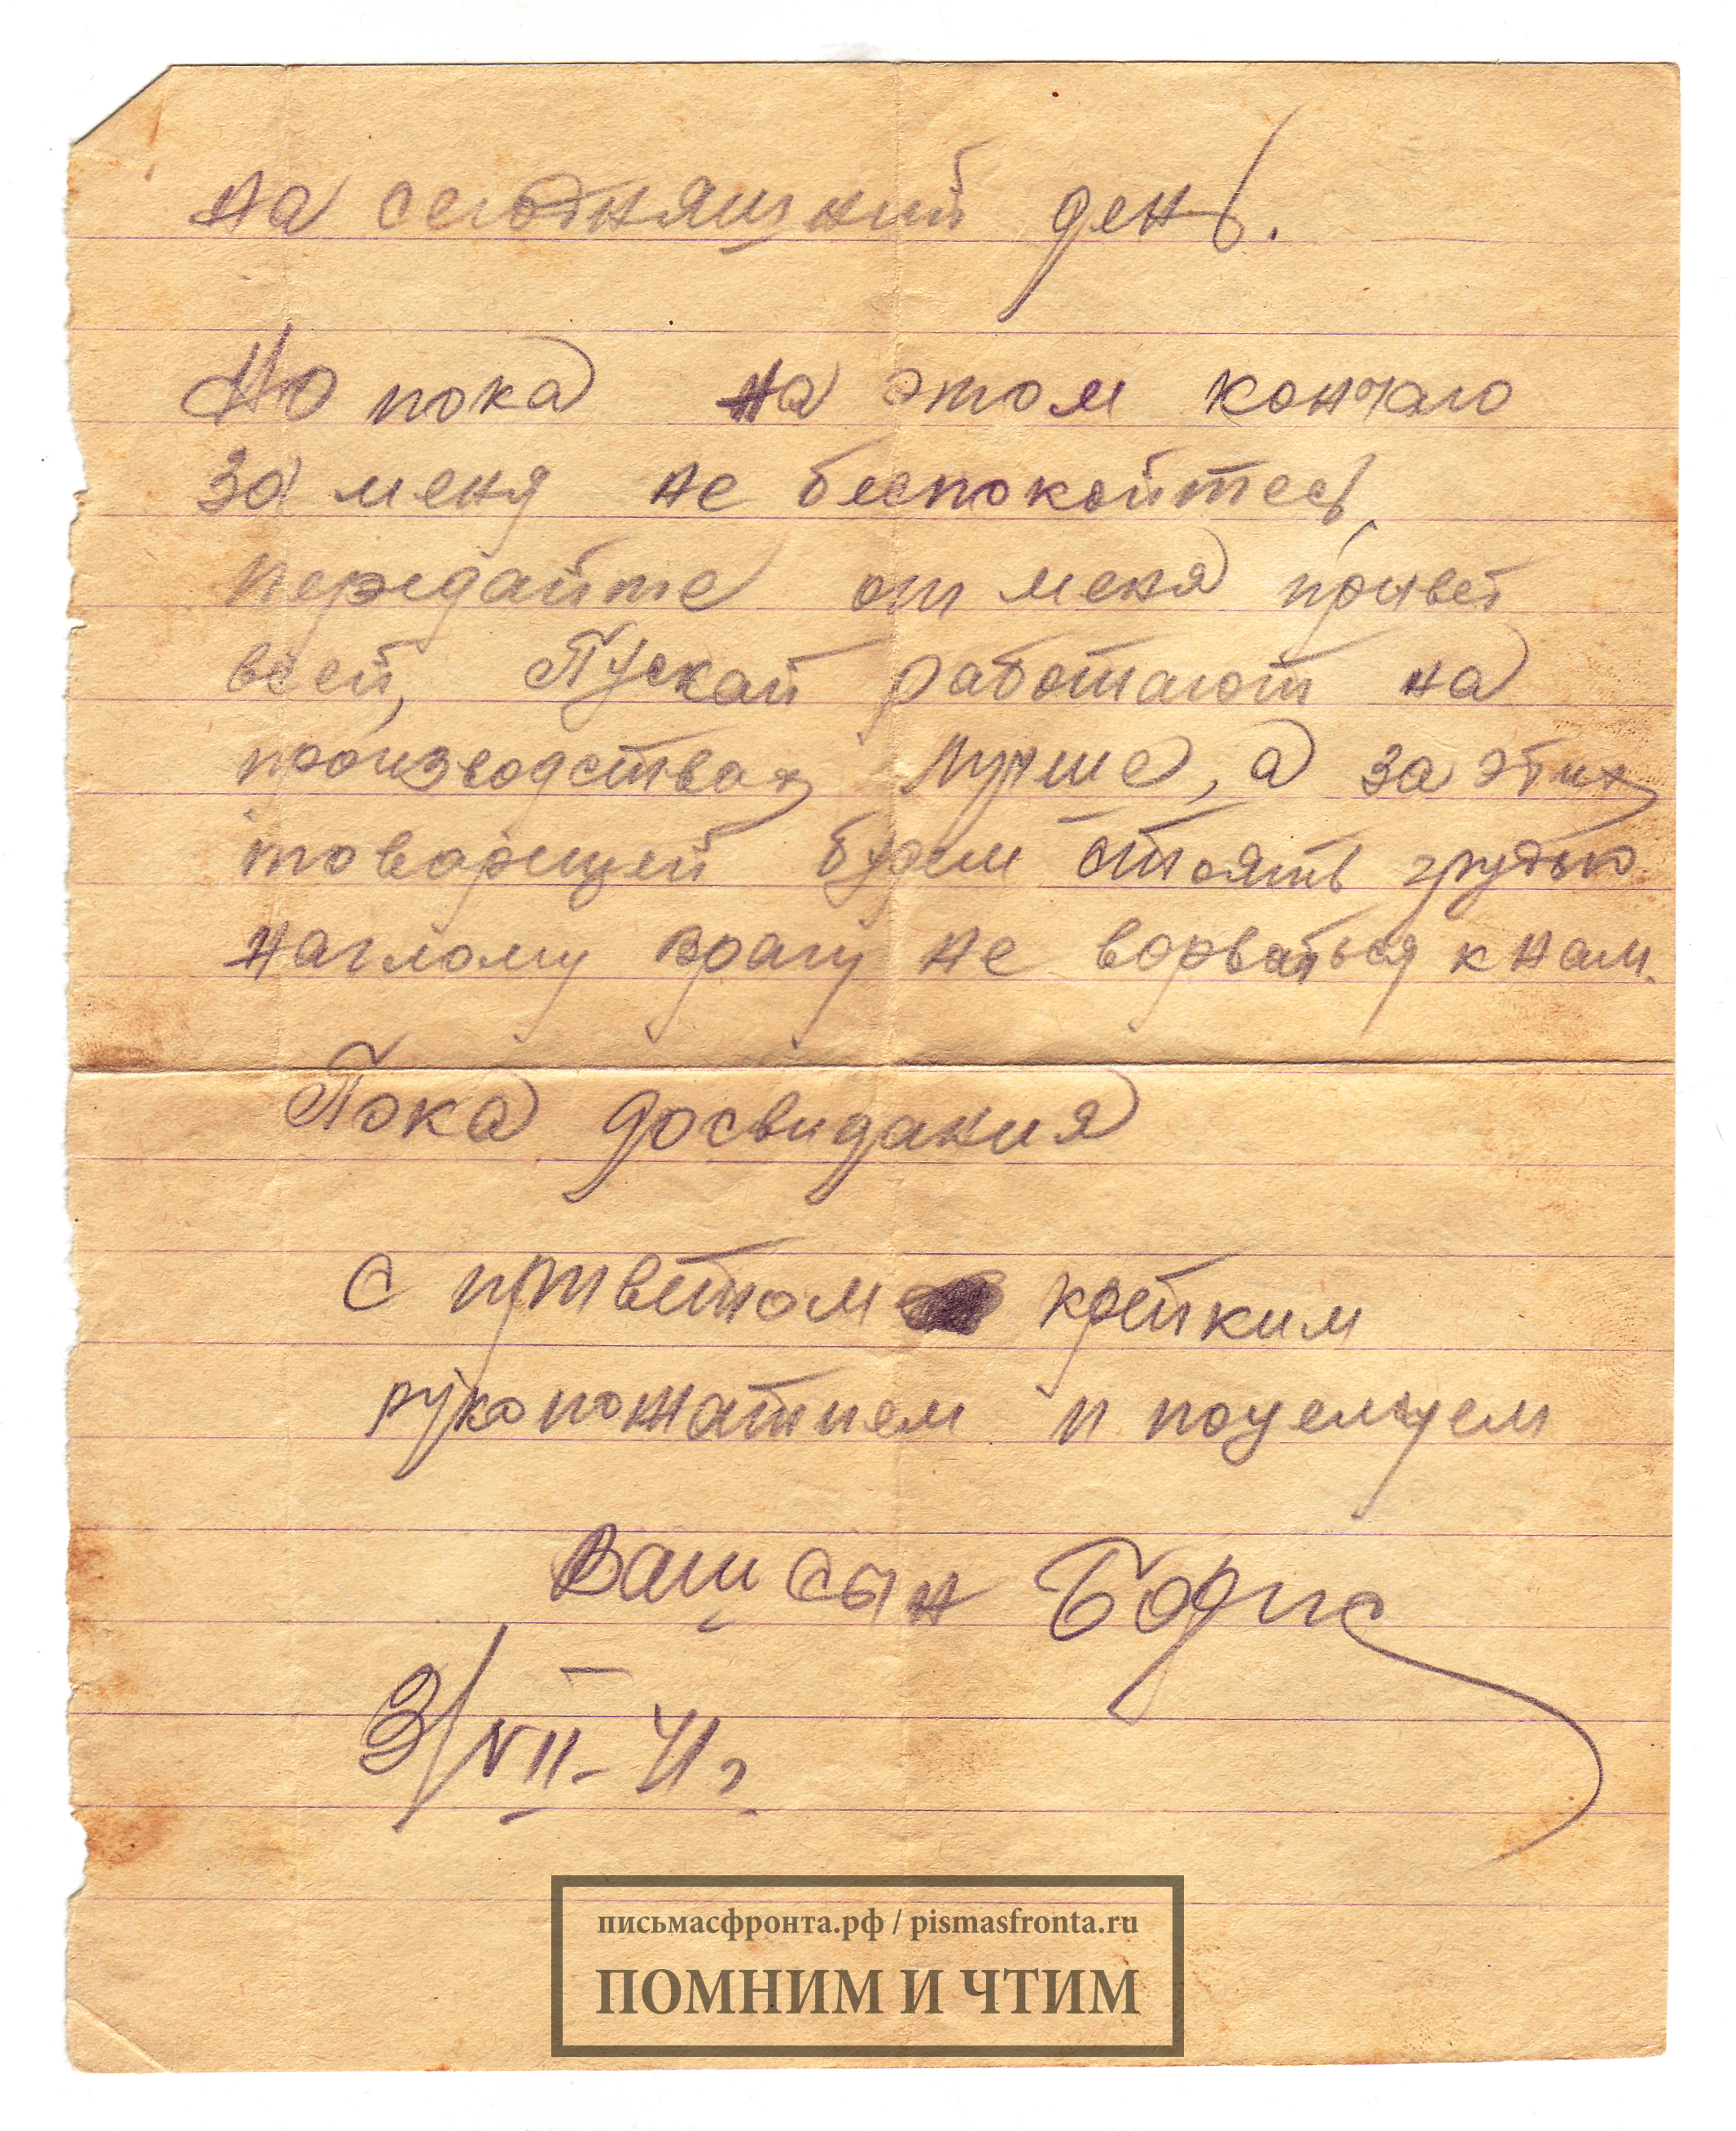 на сегодняшний день.
Но пока на этом кончаю
за меня не беспокойтесь,
передайте от меня привет
всей, Пускай работают на
производствах лучше, а за этих
товарищей будем стоять грудью
наглому врагу не ворваться к нам.
Пока досвидания
С приветом крепким
рукопожатием и поцелуем
Ваш сын Борис
3/VII-41г
письмасфронта.рф / pismasfronta.ru
ПОМНИМ И ЧТИМ